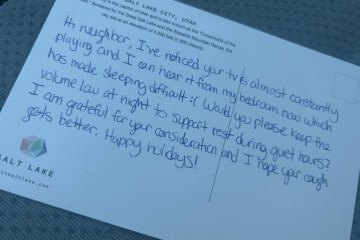 SALT LAKE CITY, UTAH
Hi neighbor, I've noticed your tv is almost constantly
playing and I can hear it from my bedroom now which
has made sleeping difficult :( Would you please keep the
volume low at night to support rest during quiet hours?
I am grateful for your consideration and I hope your cough
gets better. Happy holidays!
SALT LAKE